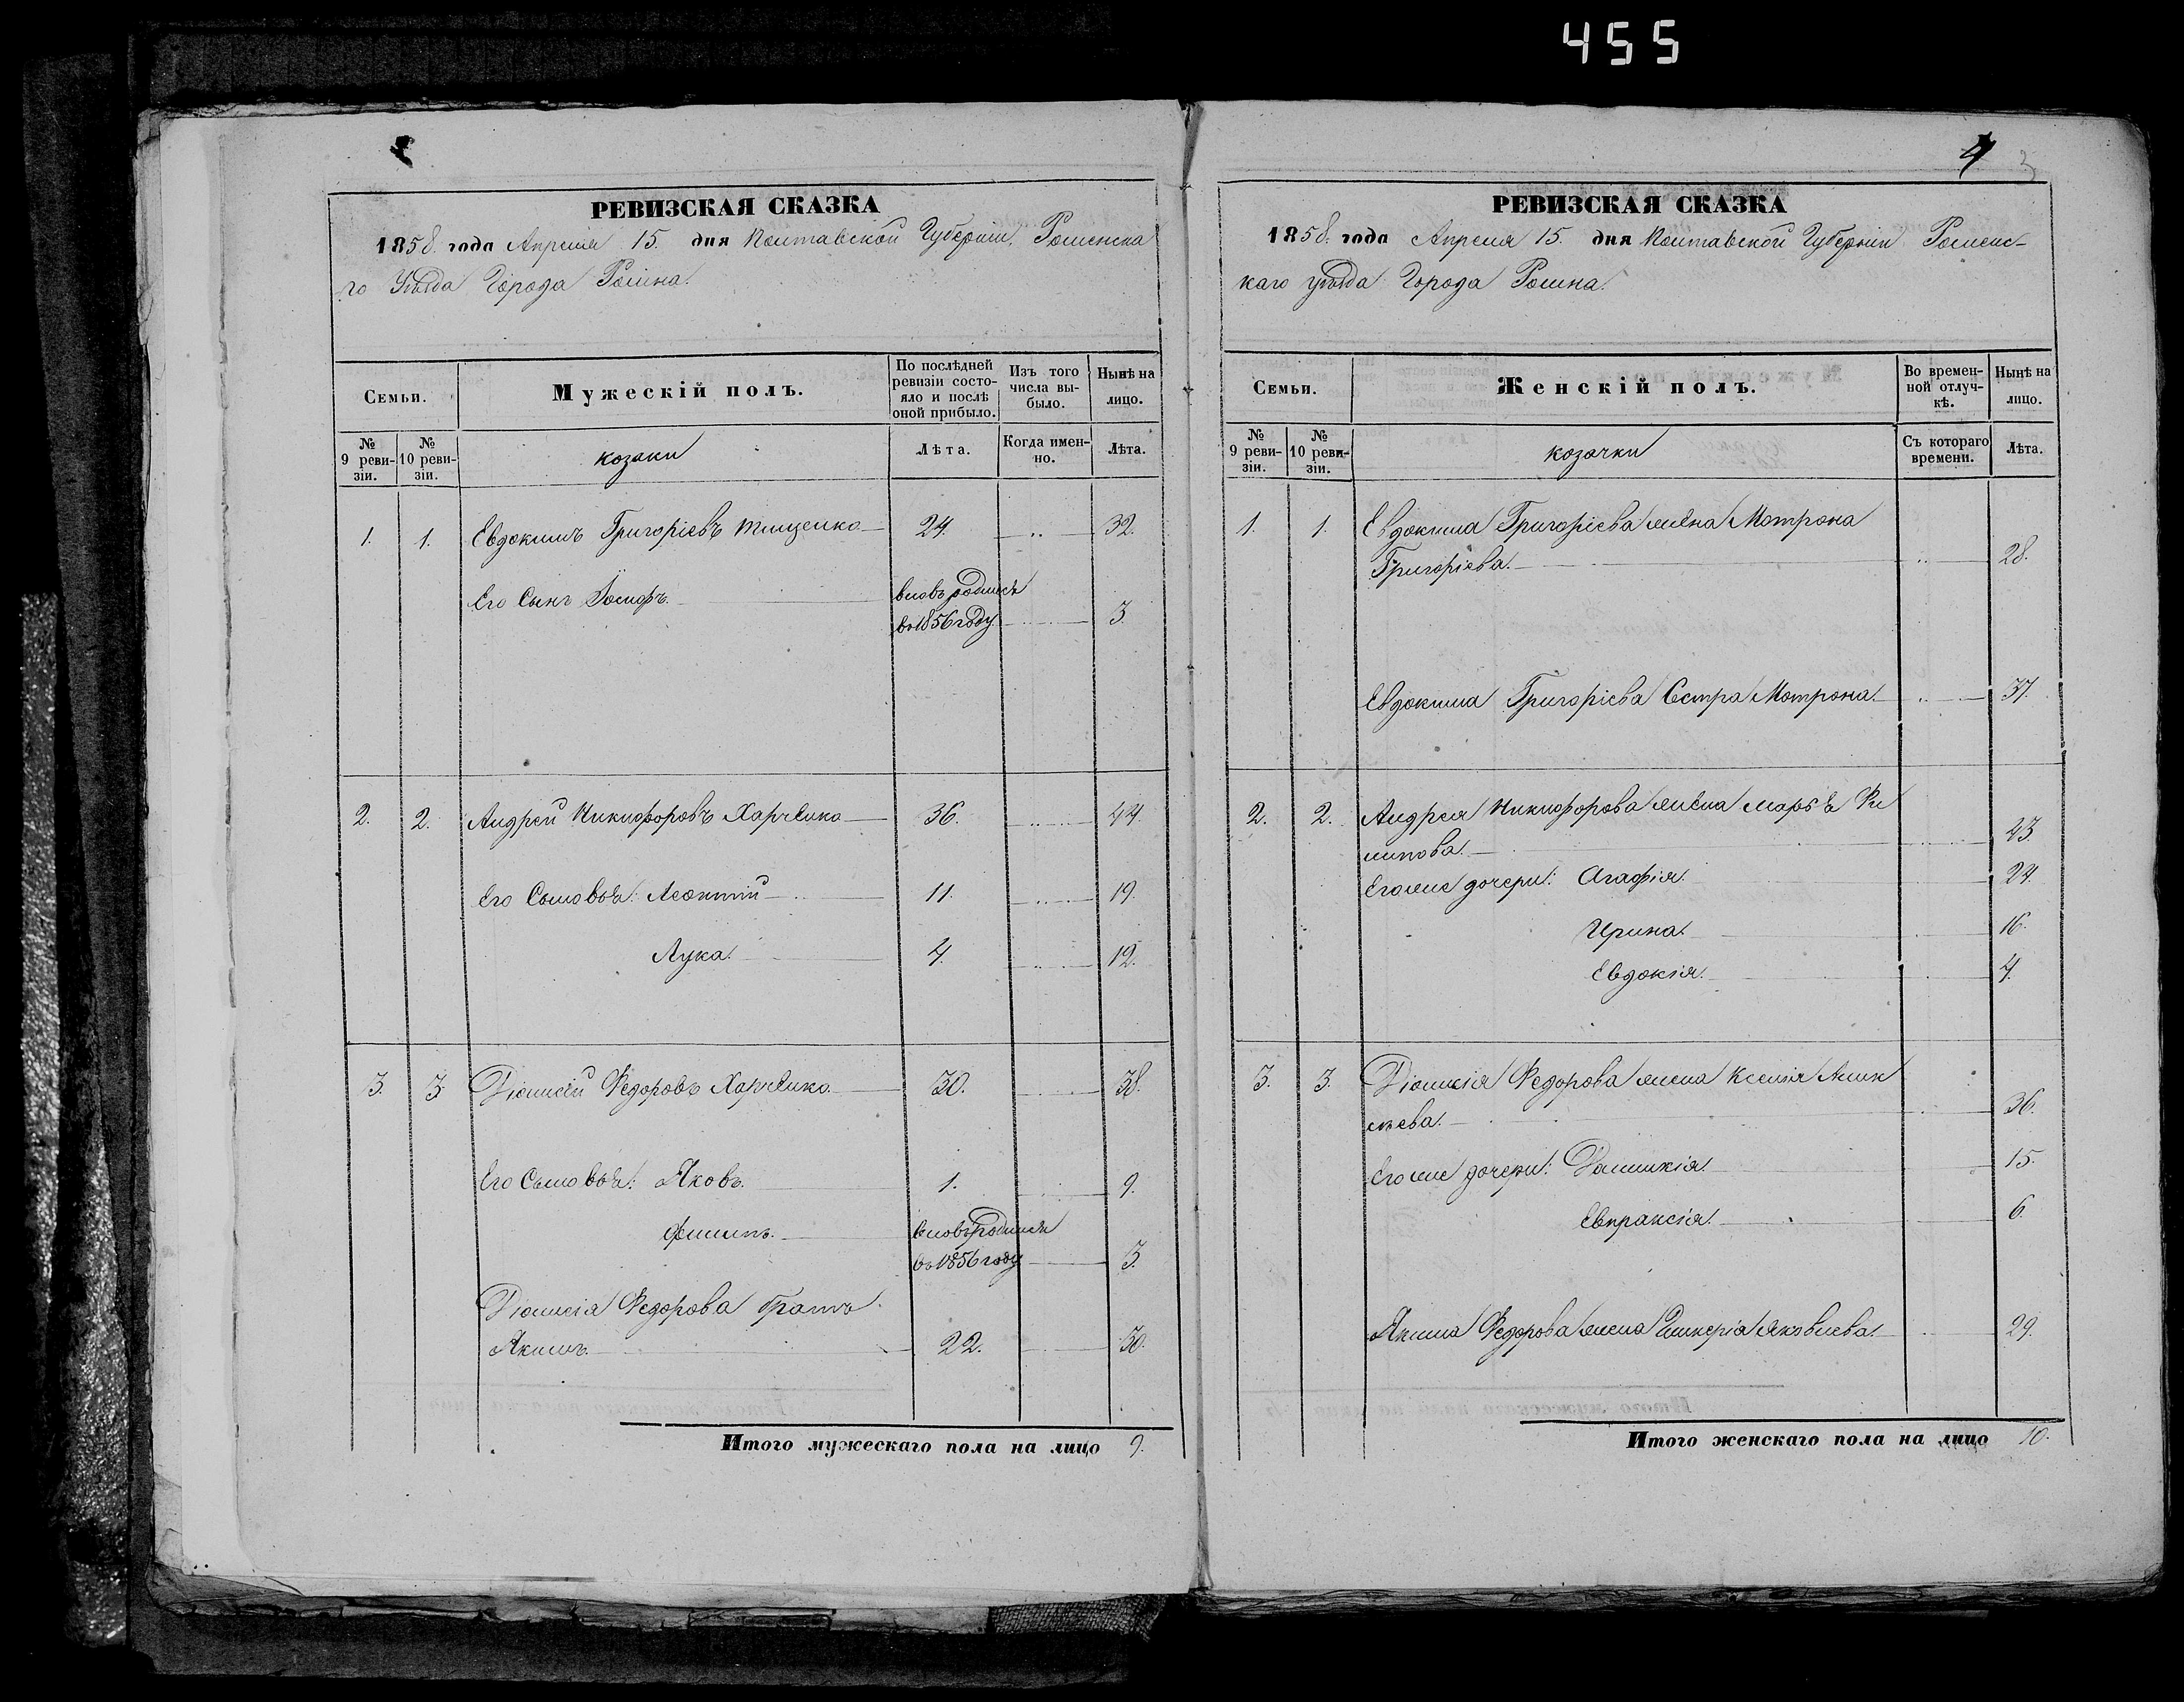 455
4 3
РЕВИЗСКАЯ СКАЗКА
1858. года Апреля 15. дня Полтавской Губерніи, Роменска
го Уѣзда Города Ромна.
Семьи.
Мужескій полъ.
По послѣдней ревизіи состояло и послѣ оной прибыло.
Изъ того числа выбыло.
Нынѣ на лицо.
№ 9 ревизіи.
№ 10 ревизіи.
козаки
Лѣта.
Когда именно.
Лѣта.
1. 1. Евдокимъ Григоріевъ Тищенко 24. 32.
Его Сынъ Іосифъ. вновь родился
во 1856 году. 3.
2. 2. Андрей Никифоровъ Харченко 36. 44.
Его Сыновья: Леонтій 11. 19.
Лука. 4. 12.
3. 3. Діонисій Федоровъ Харченко 30. 38.
Его Сыновья: Яковъ. 1. 9.
Филипъ. вновь родился
во 1856 году 3.
Діонисія Федорова братъ
Акимъ. 22. 30.
Итого мужескаго пола на лицо 9.
РЕВИЗСКАЯ СКАЗКА
1858. года Апреля 15. дня Полтавской Губерніи Роменс-
каго уѣзда Города Ромна.
Семьи.
Женскій полъ.
Во временной отлучкѣ.
Нынѣ на лицо.
№ 9 ревизіи.
№ 10 ревизіи.
козачки
Съ котораго времени.
Лѣта.
1. 1. Евдокима Григоріева жена Мотрона
Григоріева. 28.
Евдокима Григоріева Сестра Мотрона. 37.
2. 2. Андрея Никифорова жена Марья Фи
липова. 43.
Его же дочери: Агафія. 24.
Ирина. 16.
Евдокія. 4.
3. 3. Діонисія Федорова жена Ксенія Алек
сѣева. 36.
Его же дочери: Домникія. 15.
Евпраксія. 6.
Акима Федорова жена Гликерія Яковлева. 29.
Итого женскаго пола на лицо 10.